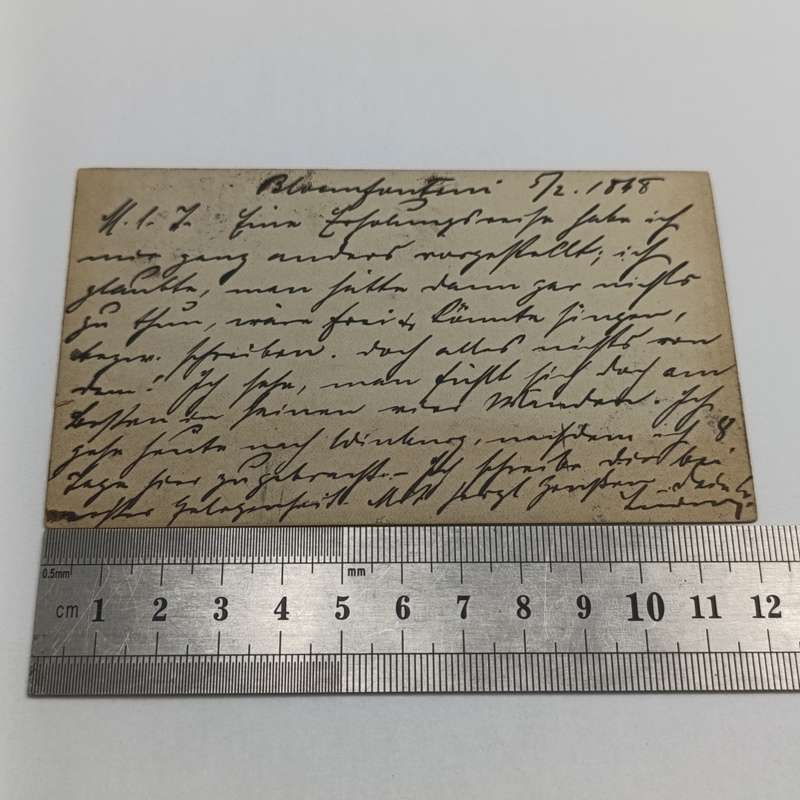 Bloemfontein 5/2. 1868
M. l. J. Eine Erholungsreise habe ich
mir ganz anders vorgestellt; ich
glaubte, man hätte dann gar nichts
zu thun, wäre frei & könnte singen,
bezw. schreiben. Doch alles nichts von
dem! Ich sehe, man fühlt sich doch am
besten in seinen vier Wänden. Ich
gehe heute nach Winburg, nachdem ich 8
Tage hier zugebracht. – Ich schreibe dir bei
erster Gelegenheit. Mit herzl Grüßen
0.5mm mm
cm 1 2 3 4 5 6 7 8 9 10 11 12